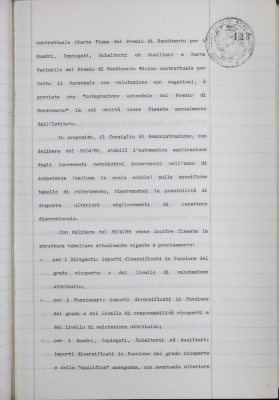 123
contrattuale (Parte Fissa del Premio di Rendimento per i
Quadri, Impiegati, Subalterni ed Ausiliari e Parte
Variabile del Premio di Rendimento Minimo contrattuale per
tutto il Personale con valutazione non negativa), è
prevista una "integrazione aziendale del Premio di
Rendimento" la cui entità viene fissata annualmente
dall'Istituto.
In proposito, il Consiglio di Amministrazione, con
delibera del 30/4/82, stabilì l'automatica applicazione
degli incrementi retributivi intervenuti nell'anno di
competenza (esclusa la scala mobile) sulle specifiche
tabelle di riferimento, riservandosi la possibilità di
disporre ulteriori miglioramenti di carattere
discrezionale.
Con delibera del 30/4/89 venne inoltre fissata la
struttura tabellare attualmente vigente e precisamente:
- per i Dirigenti: importi diversificati in funzione del
grado ricoperto e del livello di valutazione
attribuito;
- per i Funzionari: importi diversificati in funzione
del grado e del livello di responsabilità ricoperti e
del livello di valutazione attribuito;
- per i Quadri, Impiegati, Subalterni ed Ausiliari:
importi diversificati in funzione del grado ricoperto
e della "qualifica" assegnata, con eventuale ulteriore